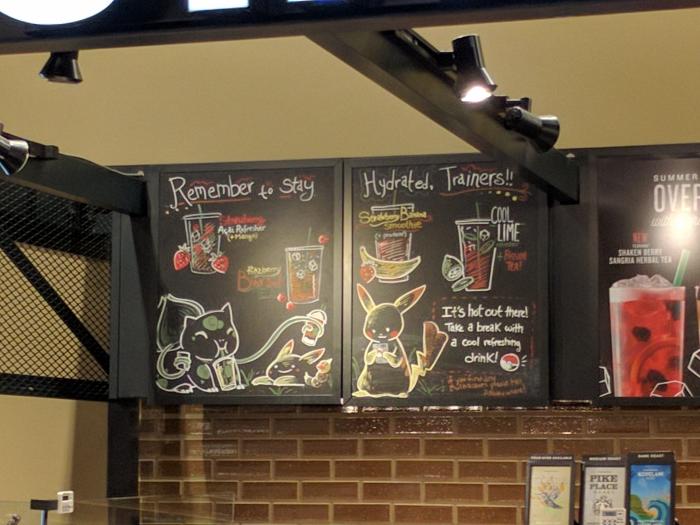 Remember to Stay
Strawberry
Açai Refresher
(+Mango)
Hydrated, Trainers!!
Strawberry Banana
Smoothie
(+protein!)
COOL
LIME
+ Passion
TEA!
It's hot out there!
Take a break with
a cool refreshing
drink!
SUMMER
OVER
NEW
SHAKEN BERRY
SANGRIA HERBAL TEA
PIKE
PLACE
DARK ROAST